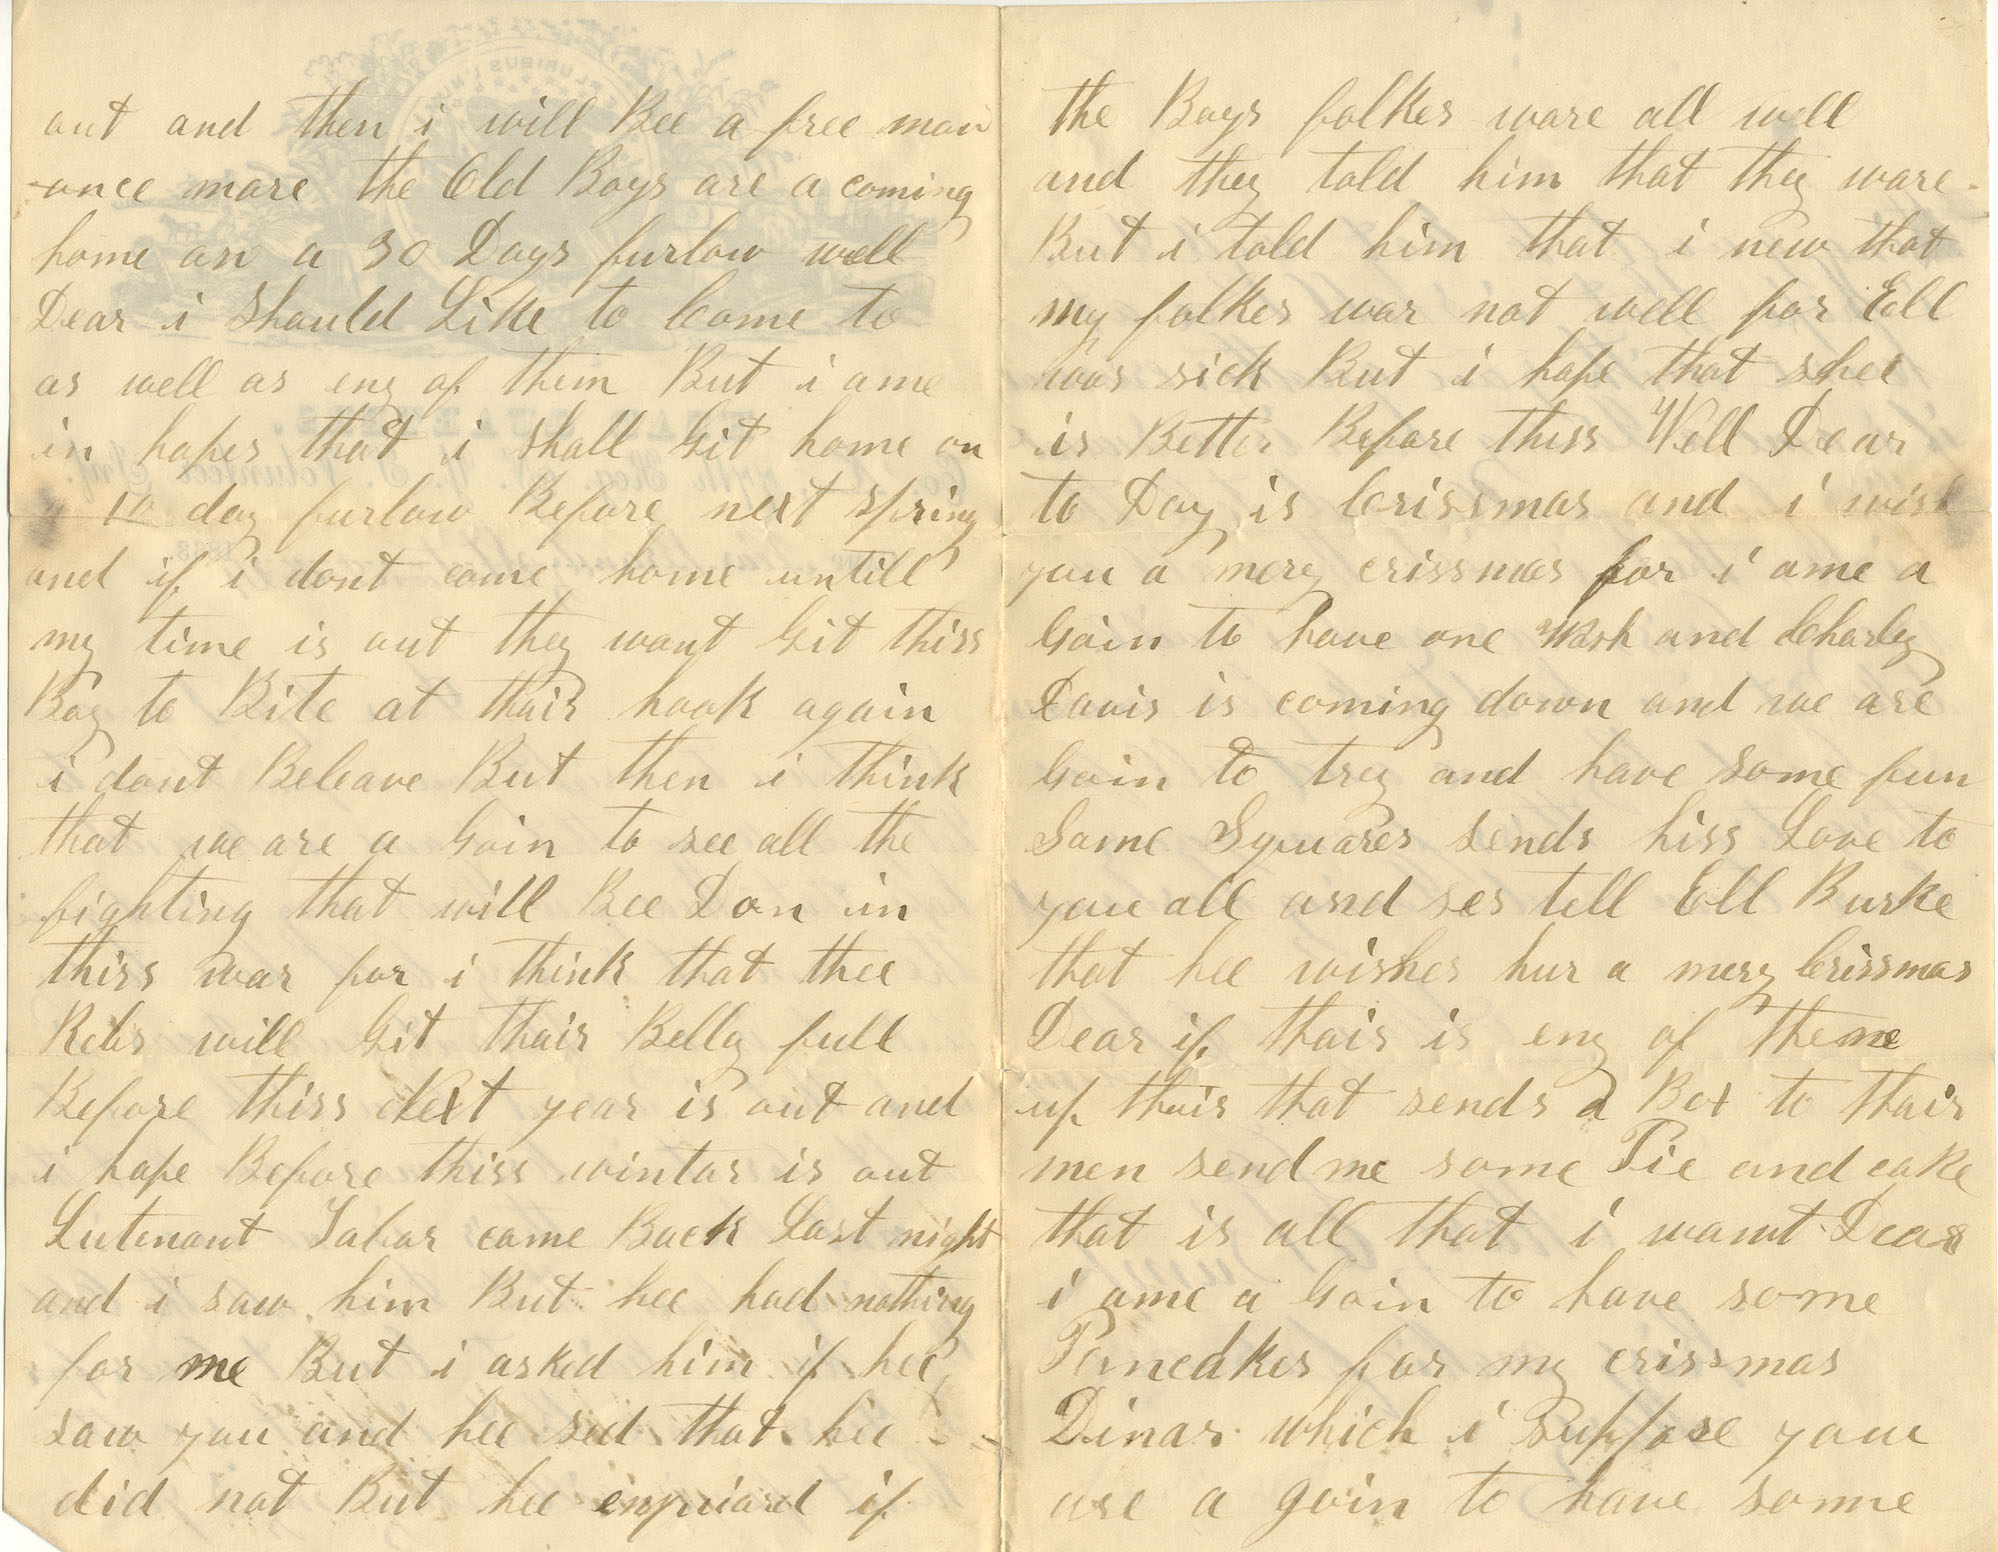 out and then i will Bee a free man
once more the Old Boys are a coming
home on a 30 Days furlow well
Dear i should Like to Come to
as well as eny of them But i ame
in hopes that i shall Git home on
a 10 day furlow Before next spring
and if i dont come home untill
my time is out they wont Git thiss
Boy to Bite at thair hook again
i dont Beleave But then i think
that we are a Goin to see all the
fighting that will Bee Don in
thiss war for i think that thee
Rebs will Git thair Belly full
Before thiss Next year is out and
i hope Before thiss wintar is out
Lutenant Tabor came Back Last night
and i saw him But hee had nothing
for me But i asked him if hee
saw you and hee sed that hee
did not But hee enquiard if
the Boys folkes ware all well
and they told him that they ware
But i told him that i new that
my folkes war not well for Ell
was sick But i hope that shee
is Better Before thiss Well Dear
to Day is Crissmas and i wish
you a mery crissmas for i ame a
Goin to have one Wash and Charley
Davis is coming down and we are
Goin to trey and have some fun
Same Squares sends hiss Love to
you all and ses tell Ell Burke
that hee wishes hur a mery Crissmas
Dear if thair is eny of theme
up thair that sends a Box to thair
men send me some Pie and cake
that is all that i wamt Dear
i ame a Goin to have some
Pancakes for my crissmas
Dinar which i suppose you
are a goin to have some